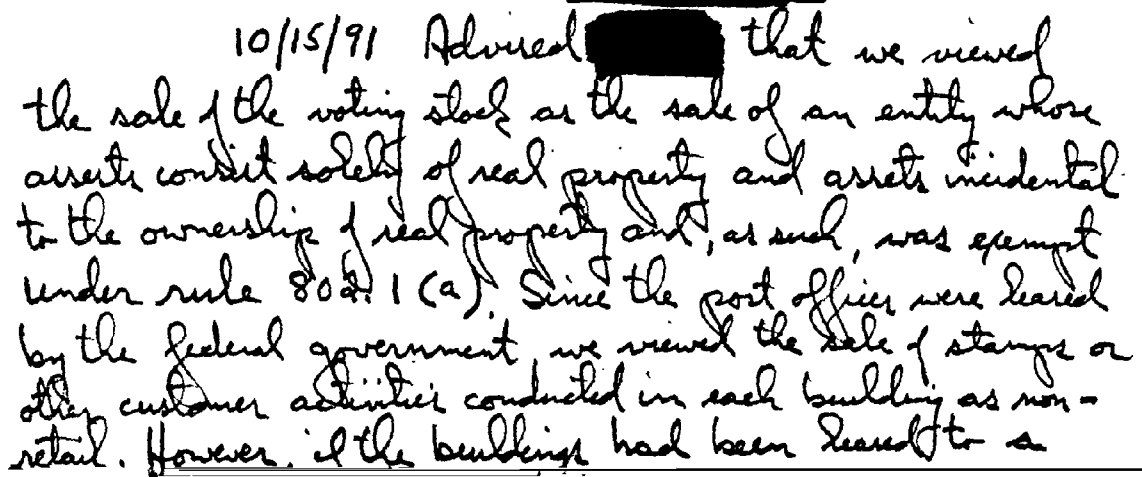 10/15/91 Advised that we viewed
the sale of the voting stock as the sale of an entity whose
assets consist solely of real property and assets incidental
to the ownership of real property and, as such, was exempt
under rule 802.1(a). Since the post offices were leased
by the federal government, we viewed the sale of stamps or
other customer activities conducted in each building as non-
retail. However, if the buildings had been leased to a